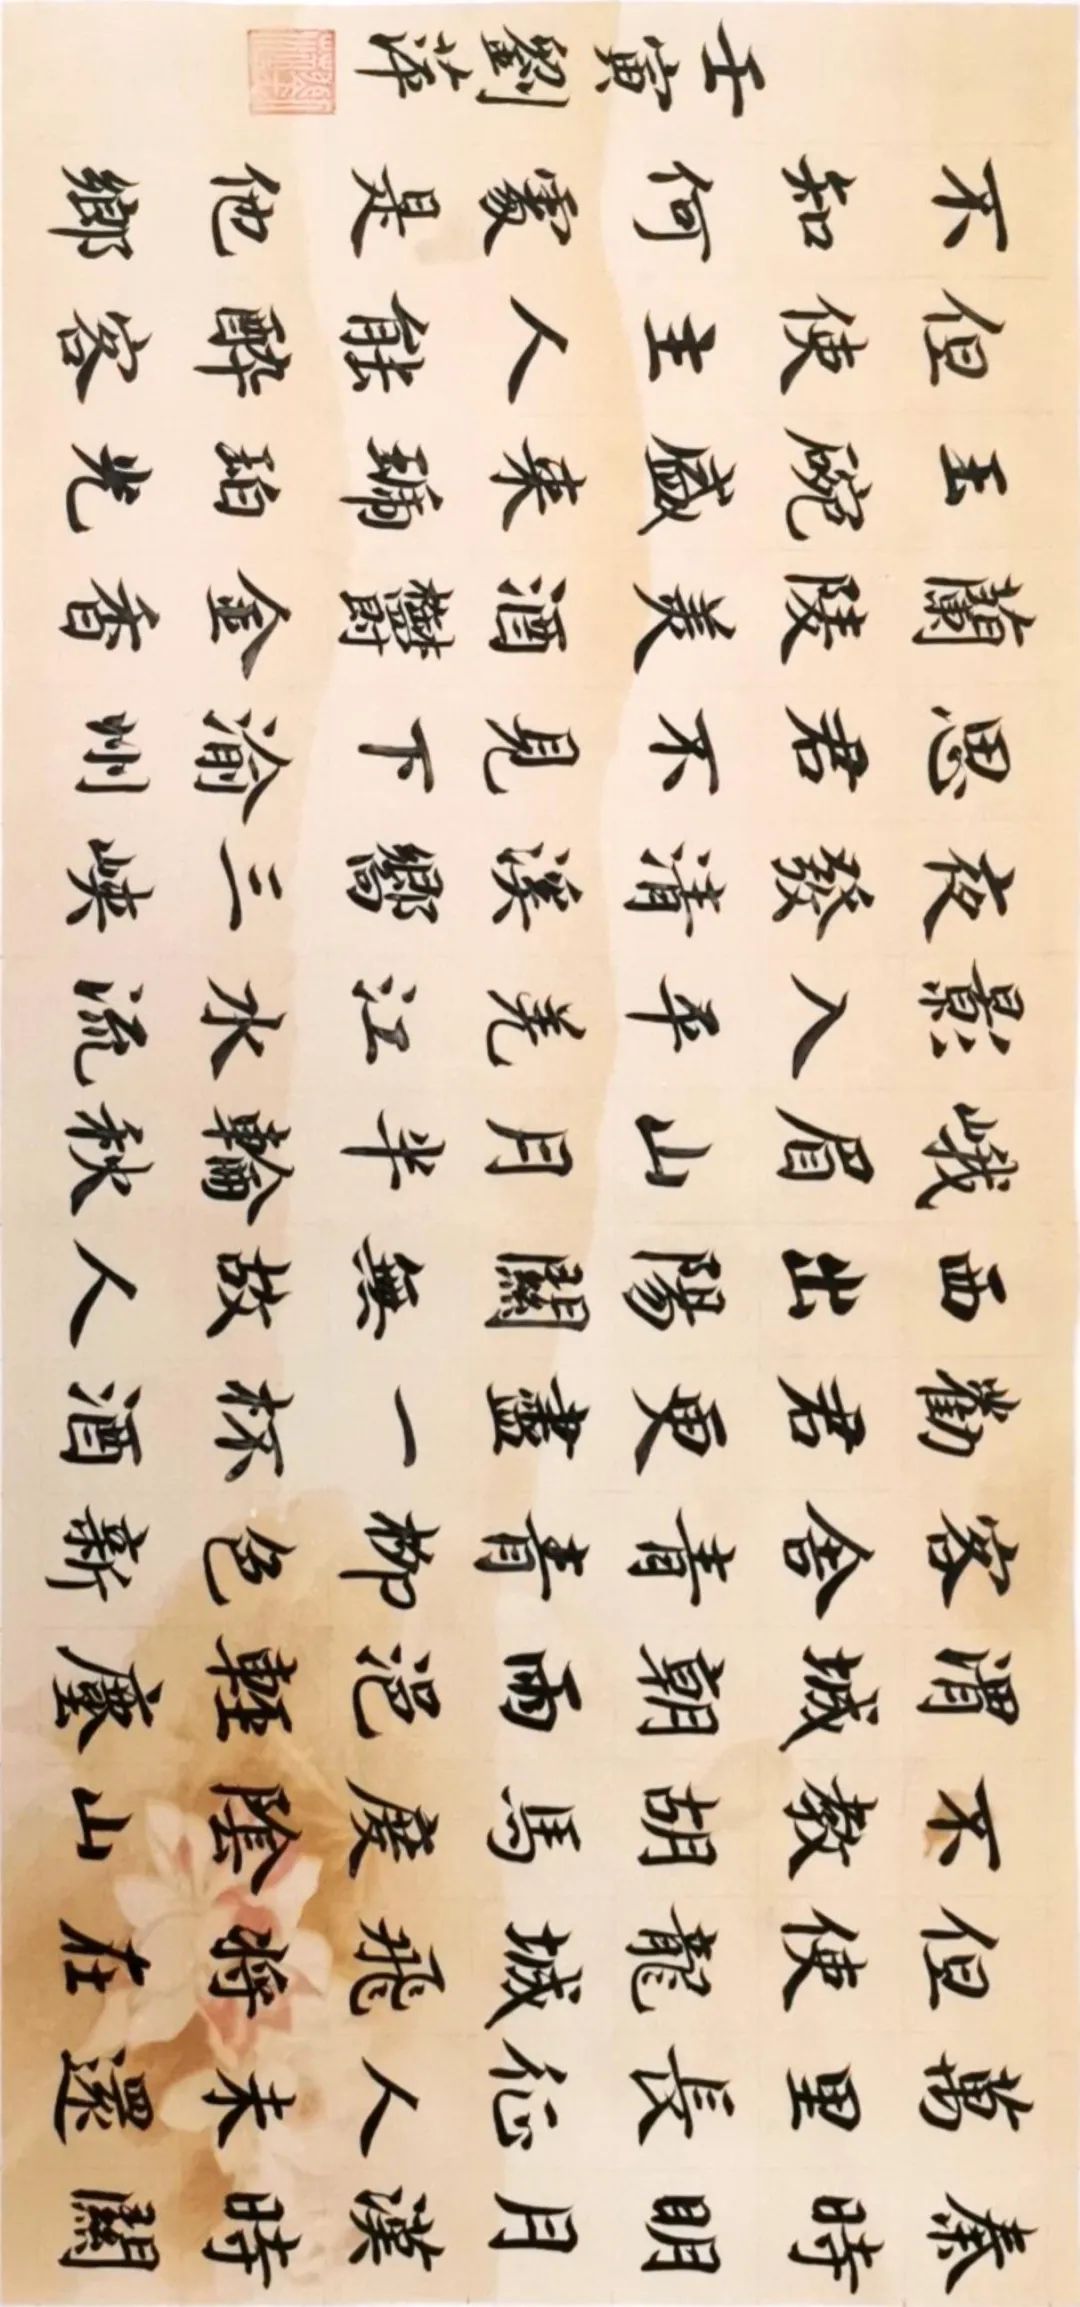 秦時明月漢時關
萬里長征人未還
但使龍城飛將在
不教胡馬度陰山
渭城朝雨浥輕塵
客舍青青柳色新
勸君更盡一杯酒
西出陽關無故人
峨眉山月半輪秋
影入平羌江水流
夜發清溪嚮三峽
思君不見下渝州
蘭陵美酒鬱金香
玉碗盛來琥珀光
但使主人能醉客
不知何處是他鄉
壬寅劉萍